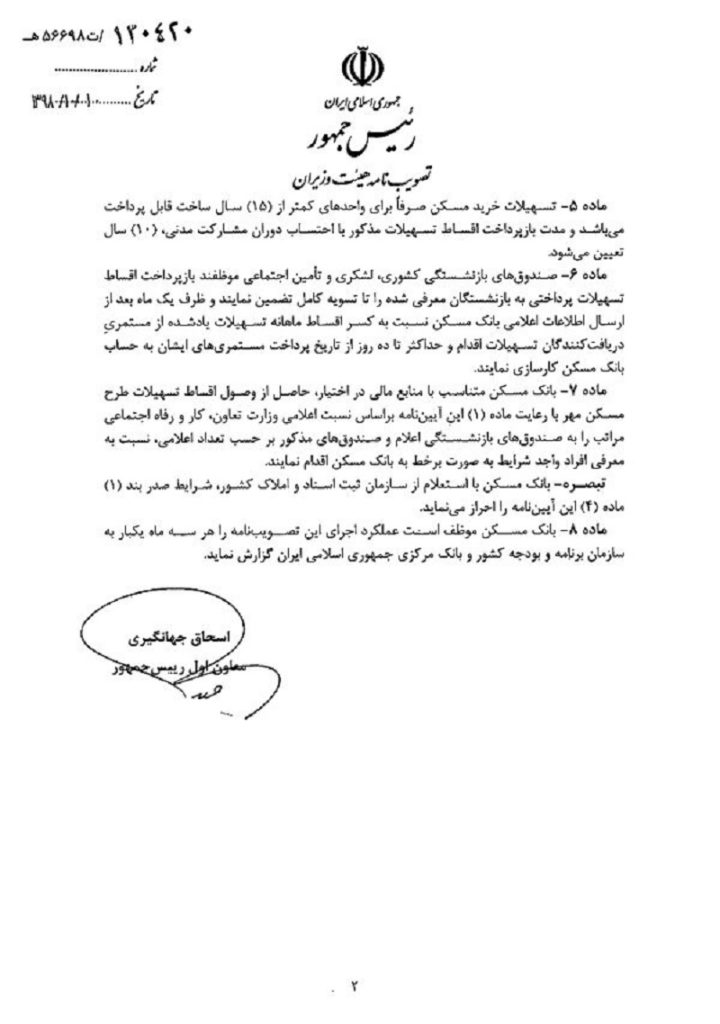 ۱۳۰٤۲۰ /ت۵۶۶۹۸هـ
شماره ....................
تاریخ ..........۱۳۹۸/۱۰/۱۰
جمهوری اسلامی ایران
رئیس جمهور
تصویب نامه هیئت وزیران
ماده ۵- تسهیلات خرید مسکن صرفاً برای واحدهای کمتر از (۱۵) سال ساخت قابل پرداخت
می‌باشد و مدت بازپرداخت اقساط تسهیلات مذکور با احتساب دوران مشارکت مدنی، (۱۰) سال
تعیین می‌شود.
ماده ۶- صندوق‌های بازنشستگی کشوری، لشکری و تأمین اجتماعی موظفند بازپرداخت اقساط
تسهیلات پرداختی به بازنشستگان معرفی شده را تا تسویه کامل تضمین نمایند و ظرف یک ماه بعد از
ارسال اطلاعات اعلامی بانک مسکن نسبت به کسر اقساط ماهانه تسهیلات یادشده از مستمری
دریافت‌کنندگان تسهیلات اقدام و حداکثر تا ده روز از تاریخ پرداخت مستمری‌های ایشان به حساب
بانک مسکن کارسازی نمایند.
ماده ۷- بانک مسکن متناسب با منابع مالی در اختیار، حاصل از وصول اقساط تسهیلات طرح
مسکن مهر با رعایت ماده (۱) این آیین‌نامه براساس نسبت اعلامی وزارت تعاون، کار و رفاه اجتماعی
مراتب را به صندوق‌های بازنشستگی اعلام و صندوق‌های مذکور بر حسب تعداد اعلامی، نسبت به
معرفی افراد واجد شرایط به صورت برخط به بانک مسکن اقدام نمایند.
تبصره- بانک مسکن با استعلام از سازمان ثبت اسناد و املاک کشور، شرایط صدر بند (۱)
ماده (۴) این آیین‌نامه را احراز می‌نماید.
ماده ۸- بانک مسکن موظف است عملکرد اجرای این تصویب‌نامه را هر سه ماه یکبار به
سازمان برنامه و بودجه کشور و بانک مرکزی جمهوری اسلامی ایران گزارش نماید.
اسحاق جهانگیری
معاون اول رییس‌جمهور
۲